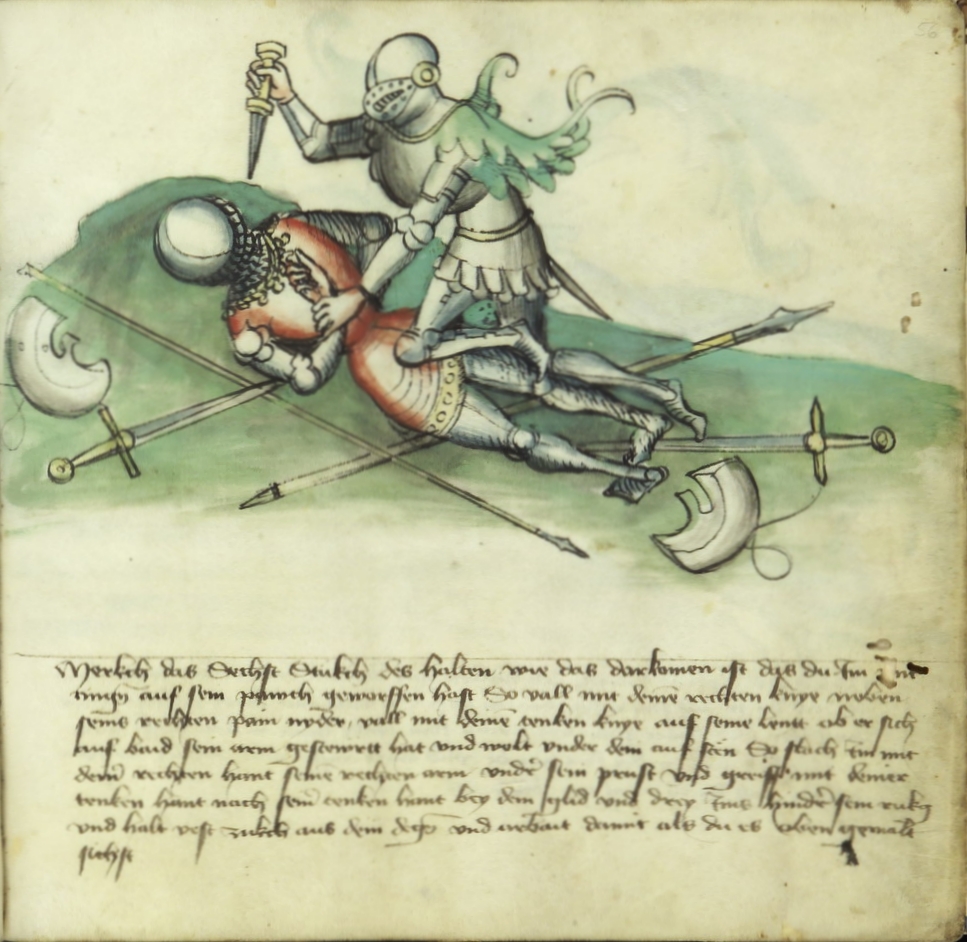 56
Merkch das Sechst Stukch des halten wie das darkomen ist das du Im In
tingn auf sein pauch geworffen hast So vall mit deine rechten knye neben
seins rechten pain nyder vall mit deine tenken knye auf seine lentt ob er sich
auf baid sein arm gestewrtt hat vnd wolt vnder dem auf sten So slach im mit
dein rechten hant seine rechten arm vnder sein prust vnd greiff mit deiner
tenken hant nach sein tenken hant bey dem glid vnd drey Ims hinder sein rukg
vnd halt vest zukch aus dein deg vnd arbait damit als du es oben gemalt
sichst